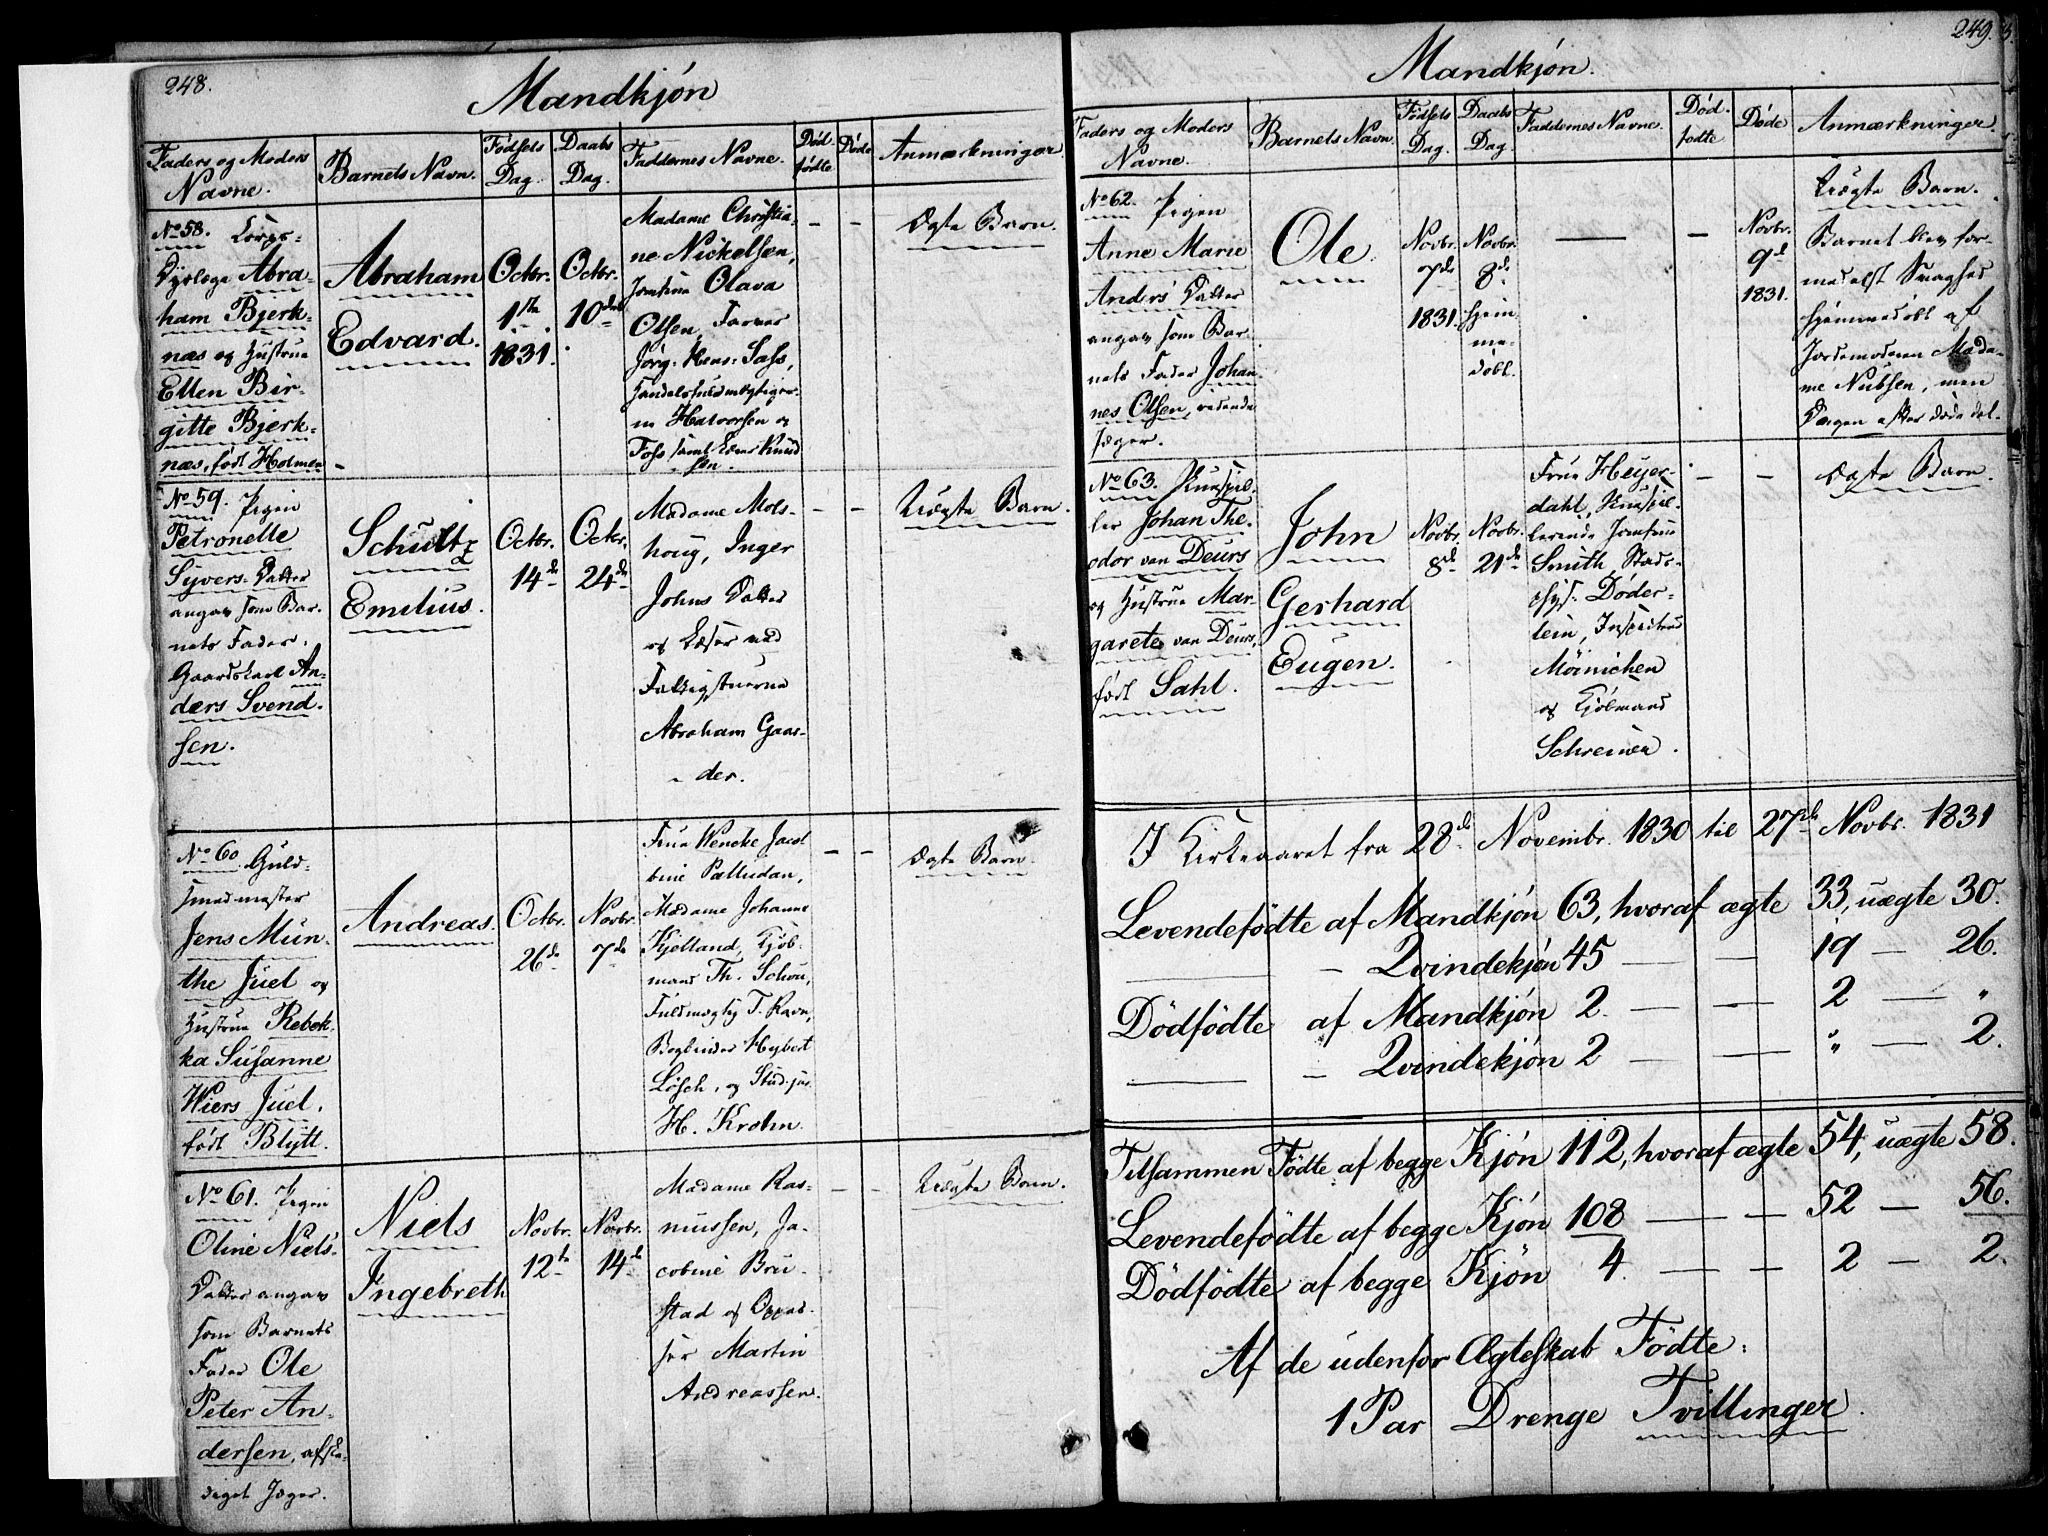 248.
Mandkjön
Faders og Moders
Navne.
Barnets Navn.
Födsels
Dag.
Daabs
Dag.
Faddernes Navne.
Död
födte
Döde
Anmærkninger
No 58. Corps-
Dyrlæge Abra-
ham Bjerk-
næs og Hustrue
Ellen Bir-
gitte Bjerk-
næs, født Holmen
Abraham
Edvard.
Octbr.
1ste
1831.
Octbr.
10de
Madame Christia-
ne Nickelsen,
Jomfrue Olava
Olsen, Farver
Jörg. Hens: Sass,
Handelsfuldmægtiger-
ne Halvorsen og
Foss samt Knud
sen.
Ægte Barn.
No 59. Pigen
Petronelle
Syvers Datter
angav som Bar-
nets Fader,
Gaardskarl An-
ders Svend-
sen.
Schultz
Emilius.
Octbr.
14de
Octbr.
24de
Madame Mols-
houg, Inger
Johns Datter
og Læser ved
Fattigstuerne
Abraham Gaas-
der.
Uægte Barn.
No 60. Guld-
smedmester
Jens Mun-
the Juel og
Hustrue Rebek-
ka Susanne
Wiers Juel,
født Blytt.
Andreas.
Octbr.
26de
Novbr.
7de
Frue Wencke Jacob
bine Palludan,
Madame Johanne
Kjelland, Kjöb-
mand Th. Schou,
Fuldmægtig T. Ravn,
Bogbinder Hybert
Lösch, og Stud. jur.
H. Krohn.
Ægte Barn
No 61. Pigen
Oline Niels-
Datter angav
som Barnets
Fader Ole
Peter An-
dersen, afske-
diget Jæger.
Niels
Ingebreth
Novbr.
12te
Novbr.
14de
Madame Ras-
mussen, Ja-
cobine Bru-
stad og Oppas-
ser Martin
Andreassen.
Uægte Barn.
249.
Mandkjön.
Faders og Moders
Navne.
Barnets Navn.
Födsels
Dag.
Daabs
Dag.
Faddernes Navne.
Död-
födte
Döde
Anmærkninger.
No 62. Pigen
Anne Marie
Anders Datter
angav som Bar-
nets Fader Johan-
nes Olsen, ridende
Jæger.
Ole.
Novbr.
7de
1831.
Novbr.
8de
hjem-
me-
döbt.
Novbr.
9de
1831.
Uægte Barn.
Barnet blev for-
medelst Svaghed
hjemmedöbt af
Jordemoderen Mada-
me Nubsen, men
Dagen efter döde det.
No 63. Skuespil-
ler Johan The-
odor van Deurs
og Hustrue Mar-
garete van Deurs,
född Sahl.
John
Gerhard
Eugen.
Novbr.
8de
Novbr.
21de
Frue Heyer-
dahl, Skuespil-
lerinde Jomfrue
Smith, Stads-
phys. Döder-
lein, Inspecteur
Möinichen
og Kjöbmand
Schreiner.
Ægte Barn
I Kirkeaaret fra 28de Novembr. 1830 til 27de Novbr. 1831
Levendefödte af Mandkjön 63, hvoraf ægte 33, uægte 30.
— - Qvindekjön 45 — — 19 — 26.
Dödfödte af Mandkjön 2. — — 2 — "
— - Qvindekjön 2 — — " — 2.
Tilsammen Födte af begge Kjön 112, hvoraf ægte 54, uægte 58.
Levendefödte af begge Kjön 108 — — 52 — 56.
Dödfödte af begge Kjön 4. — — 2 — 2.
Af de udenfor Ægteskab Födte:
1 Par Drenge Tvillinger.